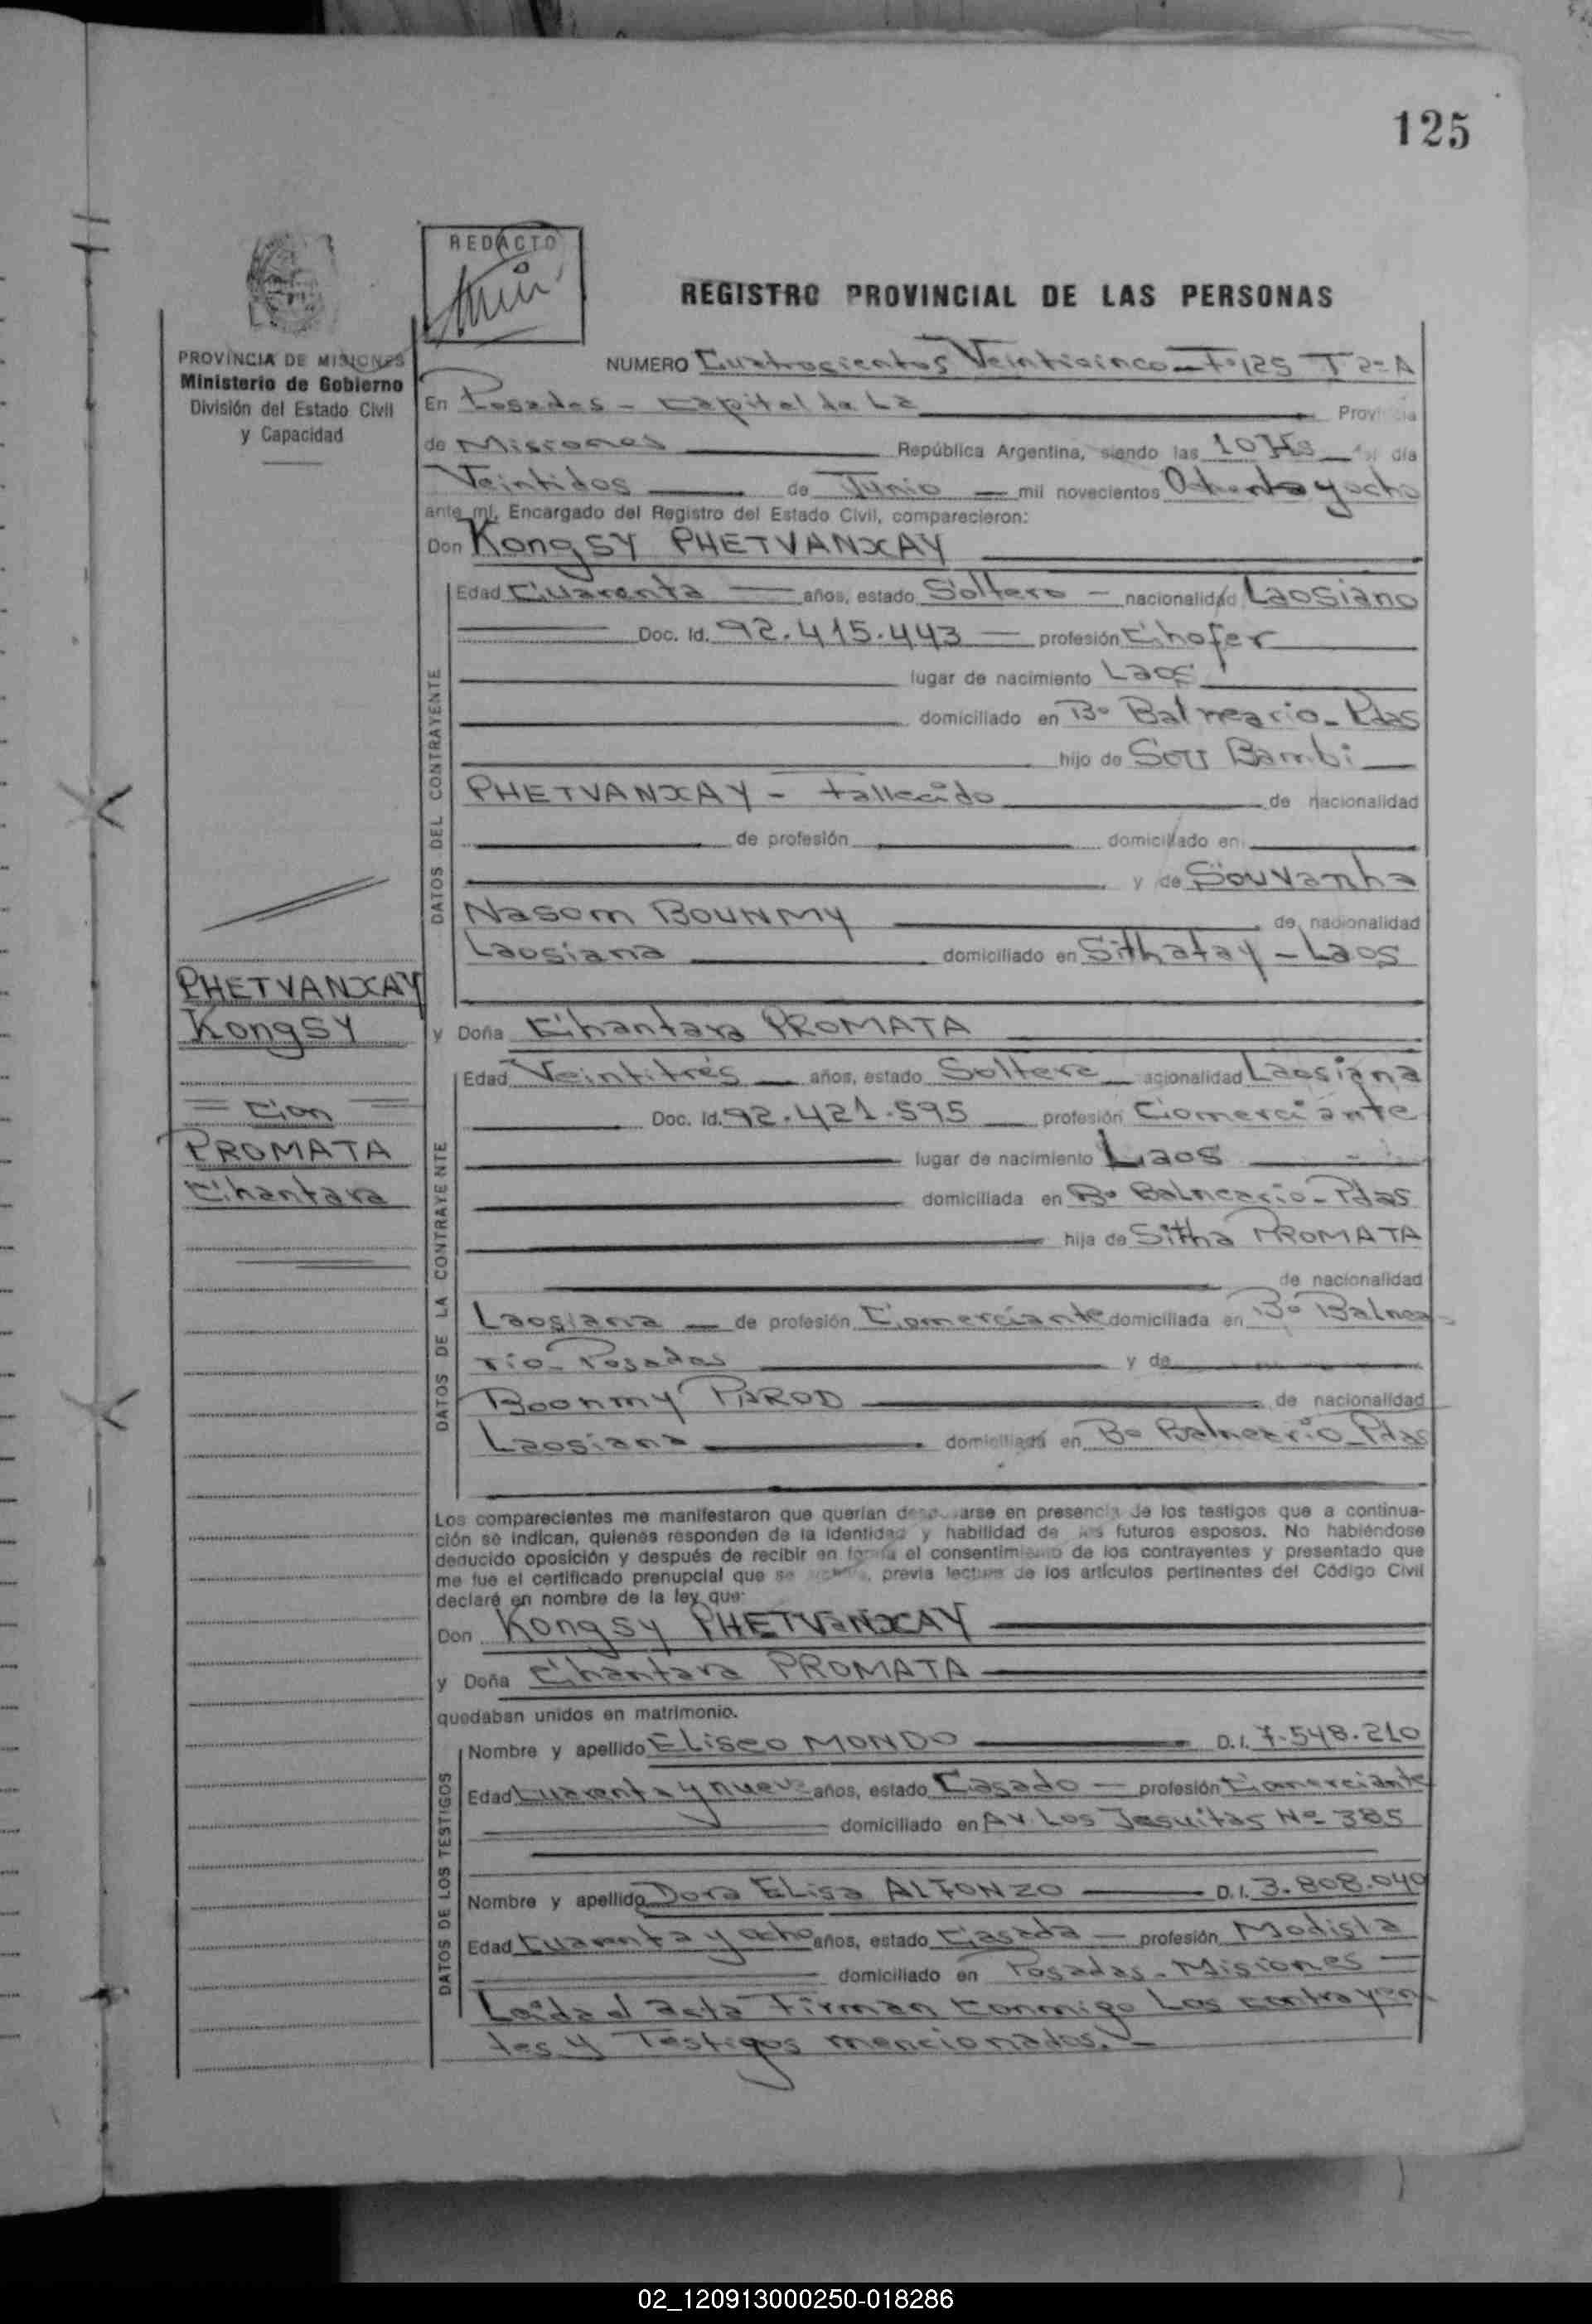 125
REDACTO
REGISTRO PROVINCIAL DE LAS PERSONAS
PROVINCIA DE MISIONES
Ministerio de Gobierno
División del Estado Civil
y Capacidad
NUMERO Cuatrocientos Veinticinco - Fº 125 T 2º A
En Posadas - Capital de La Provincia
de Misiones República Argentina, siendo las 10 Hs del día
Veintidos de Junio mil novecientos Ochenta y ocho
ante mí, Encargado del Registro del Estado Civil, comparecieron:
Don Kongsy PHETVANXAY
DATOS DEL CONTRAYENTE
Edad Cuarenta años, estado Soltero nacionalidad Laosiano
Doc. Id. 92.415.443 profesión Chofer
lugar de nacimiento Laos
domiciliado en Bº Balneario - Pdas
hijo de Sou Bambi
PHETVANXAY - Fallecido de nacionalidad
de profesión domiciliado en
y de Souvanha
Nasom BOUNMY de nacionalidad
Laosiana domiciliado en Sithatay - Laos
PHETVANXAY
Kongsy
= Con =
PROMATA
Chantara
y Doña Chantara PROMATA
DATOS DE LA CONTRAYENTE
Edad Veintitrés años, estado Soltera nacionalidad Laosiana
Doc. Id. 92.421.595 profesión Comerciante
lugar de nacimiento Laos
domiciliada en Bº Balneario - Pdas
hija de Sitha PROMATA
de nacionalidad
Laosiana de profesión Comerciante domiciliada en Bº Balnea-
rio - Posadas y de
Boonmy PAROD de nacionalidad
Laosiana domiciliada en Bº Balneario - Pdas
Los comparecientes me manifestaron que querían desposarse en presencia de los testigos que a continua-
ción se indican, quienes responden de la identidad y habilidad de los futuros esposos. No habiéndose
deducido oposición y después de recibir en forma el consentimiento de los contrayentes y presentado que
me fue el certificado prenupcial que se archiva, previa lectura de los artículos pertinentes del Código Civil
declaré en nombre de la ley que:
Don Kongsy PHETVANXAY
y Doña Chantara PROMATA
quedaban unidos en matrimonio.
DATOS DE LOS TESTIGOS
Nombre y apellido Eliseo MONDO D.I. 7.548.210
Edad Cuarenta y nueve años, estado Casado profesión Comerciante
domiciliado en Av. Los Jesuitas Nº 385
Nombre y apellido Dora Elisa ALFONZO D.I. 3.808.040
Edad Cuarenta y ocho años, estado Casada profesión Modista
domiciliado en Posadas - Misiones
Leída el acta Firman conmigo Los contrayen
tes y Testigos mencionados. -
02_120913000250-018286